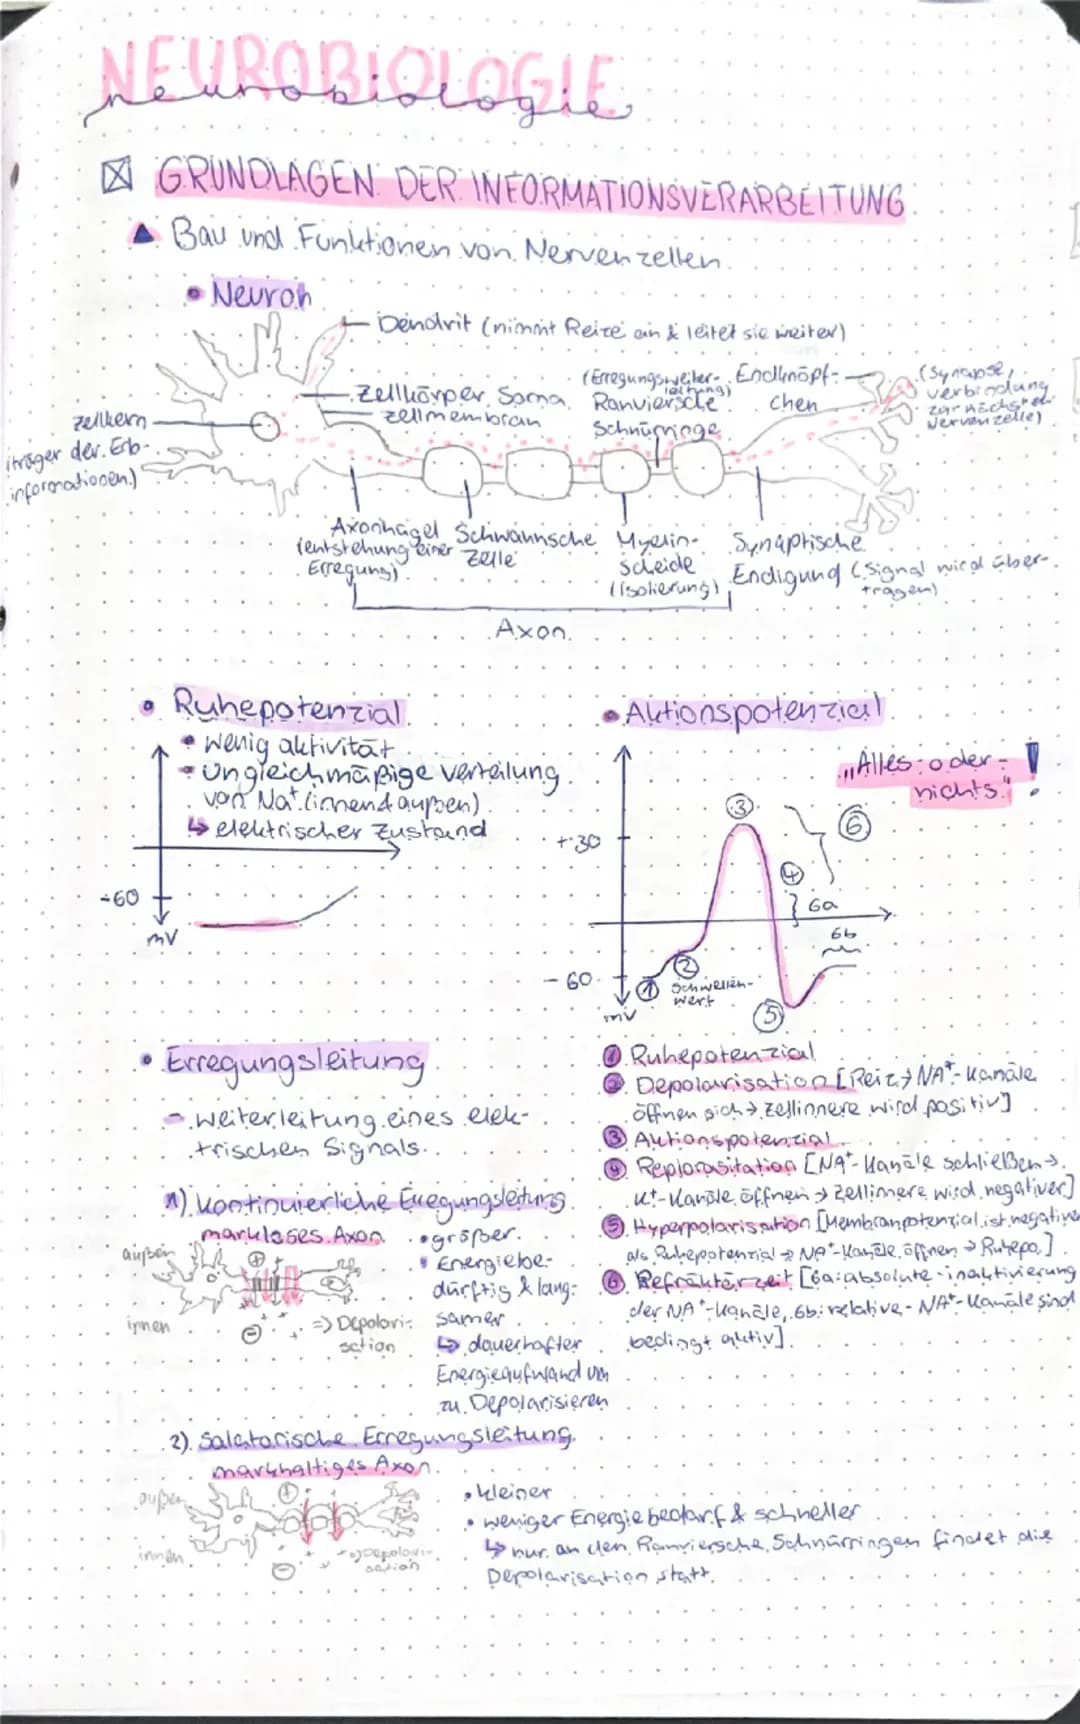 NEUROBIOLOGIE
neurobiologie
GRUNDLAGEN DER INFORMATIONSVERARBEITUNG
Bau und Funktionen von Nervenzellen
• Neuron
Dendrit (nimmt Reize ein & leitet sie weiter)
Zellkörper, Soma
Zellmembran
(Erregungsweiterleitung)
Ranviersche
Schnürringe
Endknöpf-
chen
(Synapse,
verbindung
zur nächsten
Nervenzelle)
Zellkern
(träger der Erb-
informationen)
Axonhügel
(entstehung einer
Erregung)
Schwannsche
Zelle
Myelin-
scheide
(Isolierung)
Synaptische
Endigung (Signal wird über-
tragen)
Axon
• Ruhepotenzial
• wenig aktivität
• Ungleichmäßige verteilung
von Na⁺ (innen & außen)
↳ elektrischer Zustand
-60
mV
• Aktionspotenzial
„Alles-oder-
nichts" !
+30
- 60
mV
①
②
Schwellen-
wert
③
④
⑤
⑥
6a
6b
① Ruhepotenzial
② Depolarisation [Reiz → NA⁺-Kanäle
öffnen sich → Zellinnere wird positiv]
③ Aktionspotenzial
④ Replorasitation [NA⁺-Kanäle schließen →
K⁺-Kanäle öffnen → Zellinnere wird negativer]
⑤ Hyperpolarisation [Membranpotenzial ist negative
als Ruhepotenzial → NA⁺-Kanäle öffnen → Ruhepo.]
⑥ Refraktärzeit [6a: absolute - inaktivierung
der NA⁺-Kanäle, 6b: relative - NA⁺-Kanäle sind
bedingt aktiv]
• Erregungsleitung
- weiterleitung eines elek-
trischen Signals
1) Kontinuierliche Erregungsleitung
markloses Axon
außen
innen
+
-
=> Depolari-
sation
• größer
• Energiebe-
dürftig & lang-
samer
↳ dauerhafter
Energieaufwand um
zu Depolarisieren
2) Salatorische Erregungsleitung
markhaltiges Axon
außen
innen
+
-
=> Depolari-
sation
• kleiner
• weniger Energiebedarf & schneller
↳ nur an den Ranviersche Schnürringen findet die
Depolarisation statt.